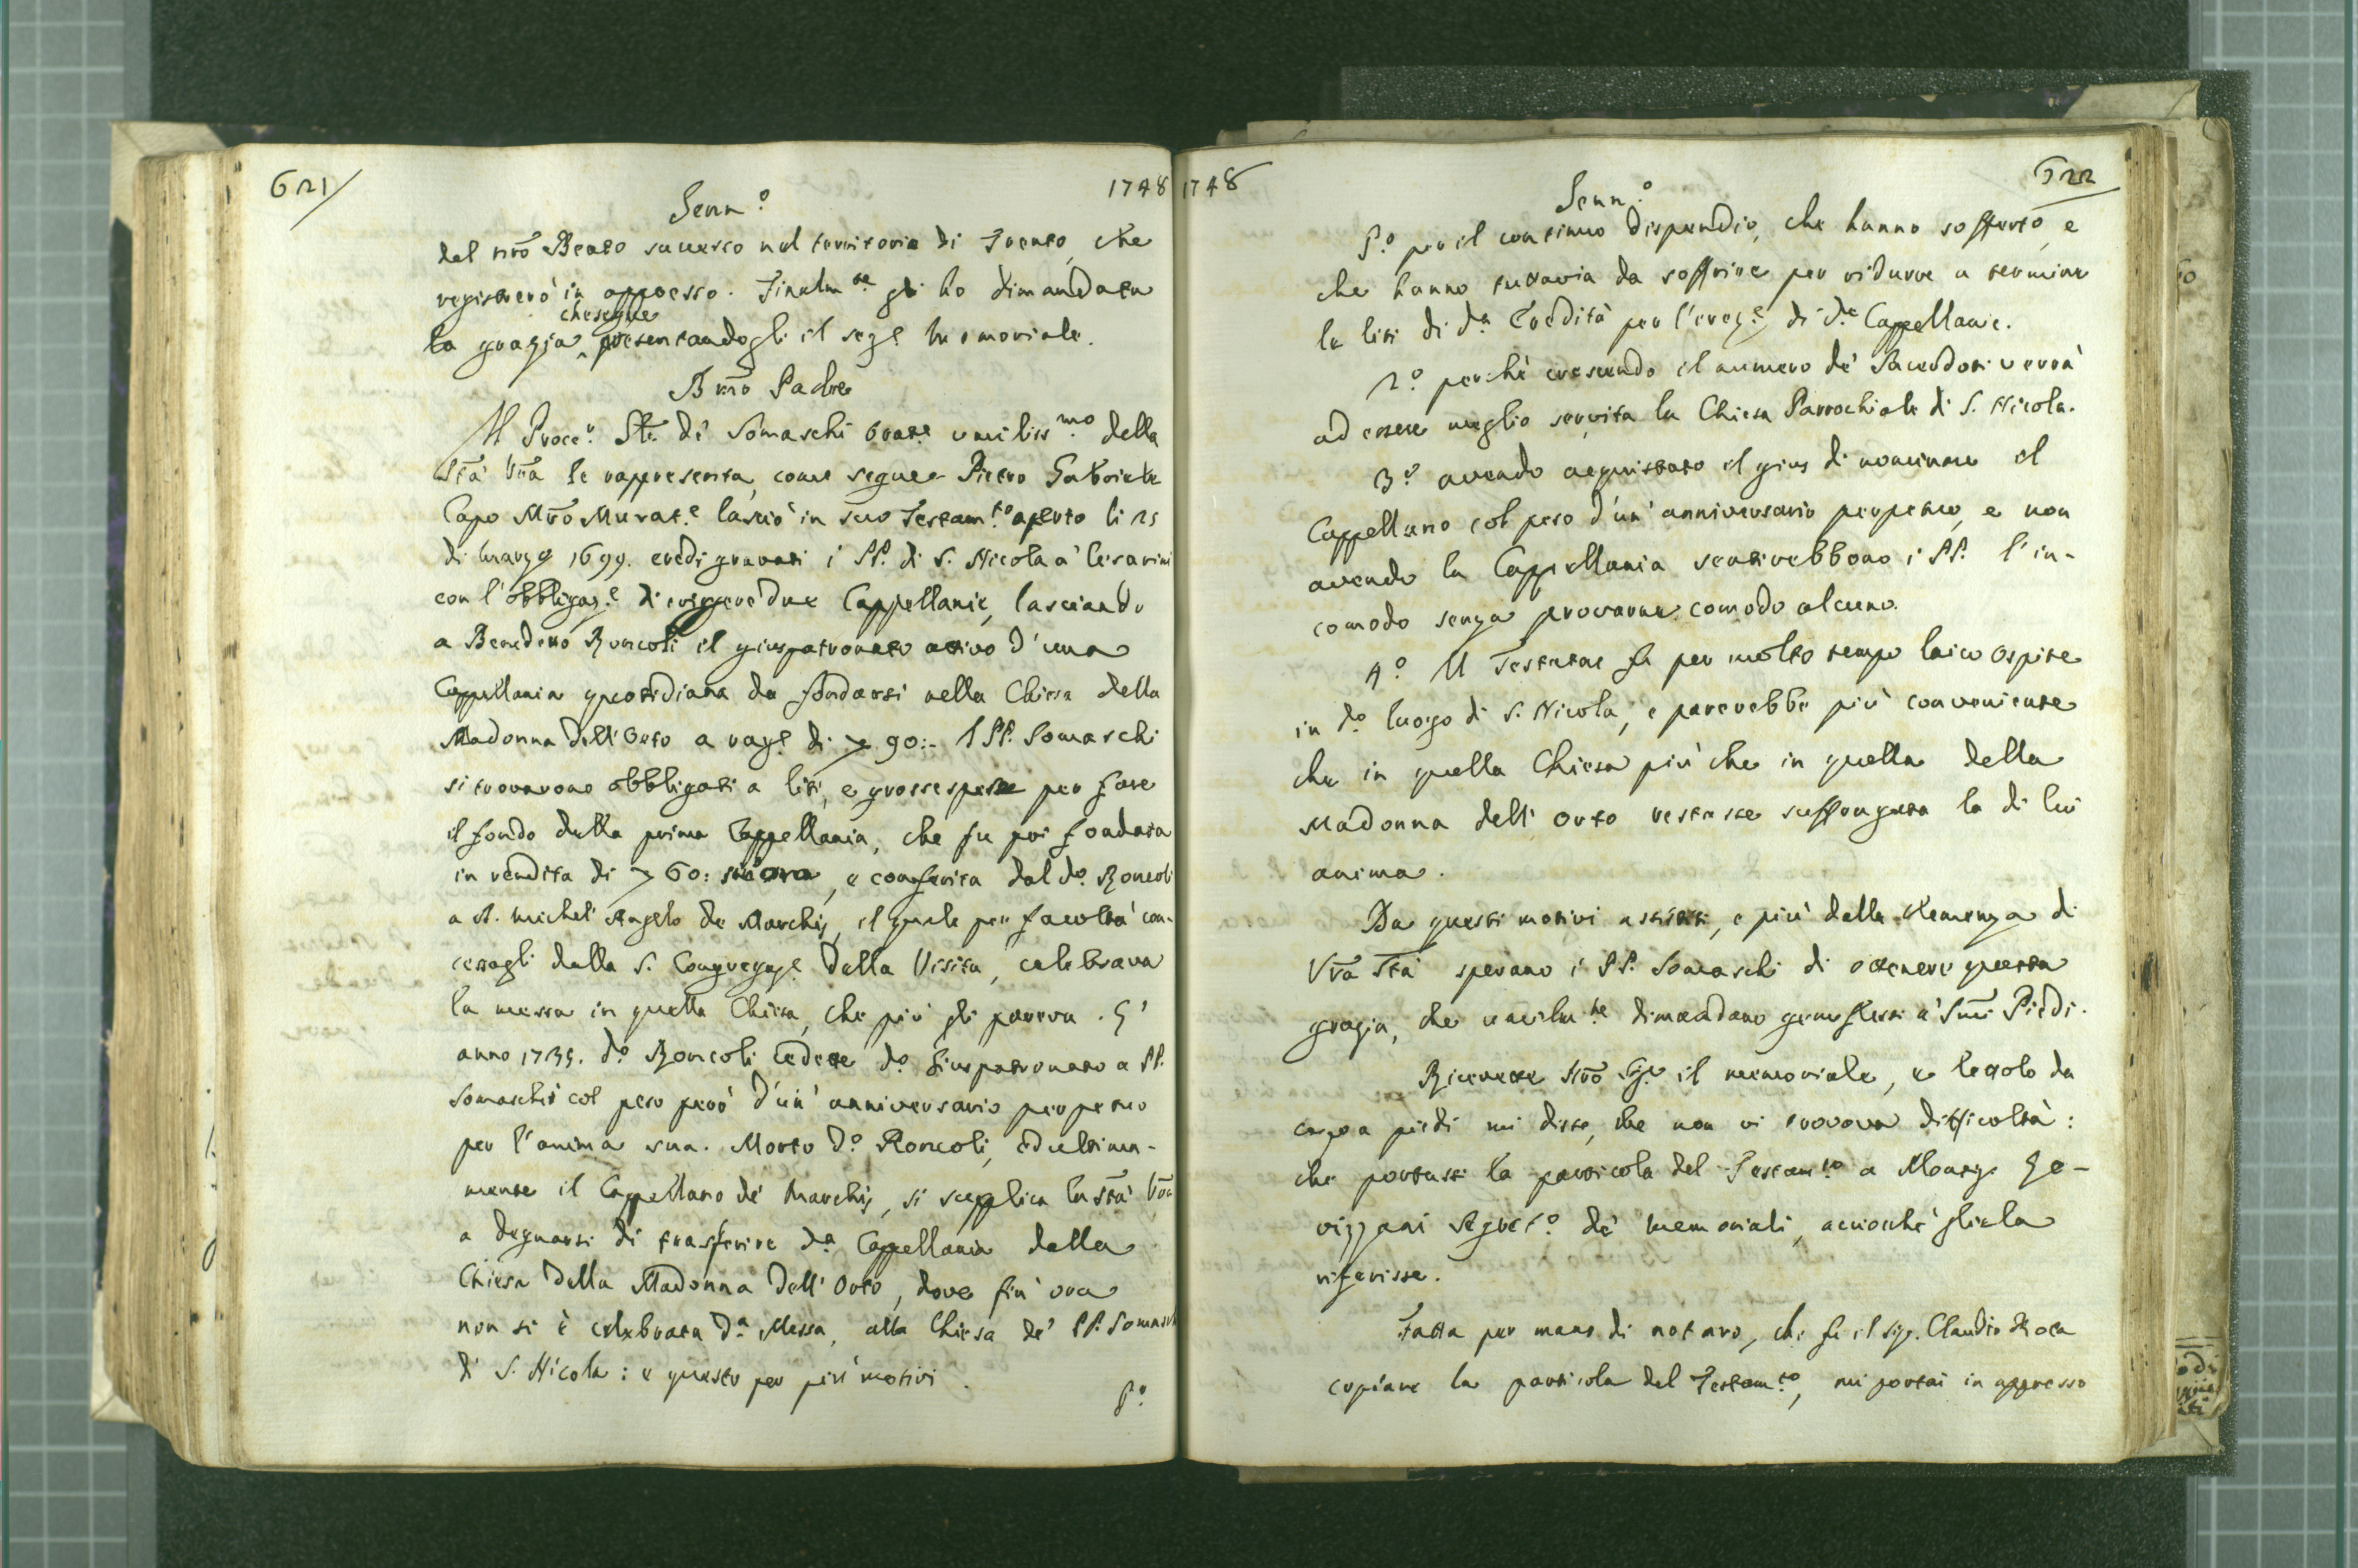 621
1748
Genn.º
del nrõ Beato successo nel territorio di Trento, che
registrerò in appresso. Finalm.te gli ho dimandata
che segue
la grazia presentandogli il segt.e memoriale.
Bmõ Padre
Il Procc.r Gñle de' Somaschi Orat.e umiliss.mo della
Stã Vrã le rappresenta, come segue. Pietro Gabriele
Capo Mrõ Murat.e lasciò in suo Testam.to aperto li 25
di Marzo 1699. eredi gravati i PP. di S. Nicola a' Cesarini
con l'obbligaz.e di eriggere due Cappellanie, lasciando
a Benedetto Roncoli il giuspatronato attivo d'una
Cappellania quotidiana da fondarsi nella Chiesa della
Madonna dell'Orto a rag.e di 90:- I PP. Somaschi
si trovarono obbligati a liti, e grosse spese per fare
il fondo della prima Cappellania, che fu poi fondata
in rendita di 60: , e conferita dal d.º Roncoli
a D. Michel' Angelo de Marchis, il quale per facoltà con-
cessagli dalla S. Congregaz.e della Visita, celebrava
la messa in quella Chiesa, che più gli pareva. L'
anno 1735. d.º Roncoli cedette d.º Giuspatronato a PP.
Somaschi col peso però d'un' anniversario perpetuo
per l'anima sua. Morto d.º Roncoli, ed ultima-
mente il Cappellano de' Marchis, si supplica la Stã Vrã
a degnarsi di trasferire d.a Cappellania dalla
Chiesa della Madonna dell'Orto, dove fin' ora
non si è celebrata d.a Messa, alla Chiesa de' PP. Somaschi
di S. Nicola: e questo per più motivi.
P.º
1748
622
Genn.º
P.º per il continuo dispendio, che hanno sofferto, e
che hanno tuttavia da soffrire per ridurre a termine
le liti di d.a Eredità per l'erez.e di d.e Cappellanie.
2.º perchè crescendo il numero de' Sacerdoti verrà
ad essere meglio servita la Chiesa Parrochiale di S. Nicola.
3.º avendo acquistato il gius di nominare il
Cappellano col peso d'un' anniversario perpetuo, e non
avendo la Cappellania sentirebbono i PP. l'in-
comodo senza provarne comodo alcuno.
4.º Il Testatore fu per molto tempo laico Ospite
in d.º luogo di S. Nicola, e parerebbe più conveniente
che in quella Chiesa più che in quella della
Madonna dell' Orto restasse suffragata la di lui
anima.
Da questi motivi assistiti, e più dalla clemenza di
Vrã Stã sperano i PP. Somaschi di ottenere questa
grazia, che umilm.te dimandano genuflessi a' Smĩ Piedi.
Ricevette Nrõ Sig.e il memoriale, e lettolo da
capo a piedi mi disse, che non vi trovava difficoltà:
che portassi la particola del Testam.to a Monsig.r Ge-
vizzani Segret.º de' Memoriali, acciocchè gliela
riferisse.
Fatta per mano di notaro, che fu il Sig. Claudio
copiare la particola del Testam.to, mi portai in appresso